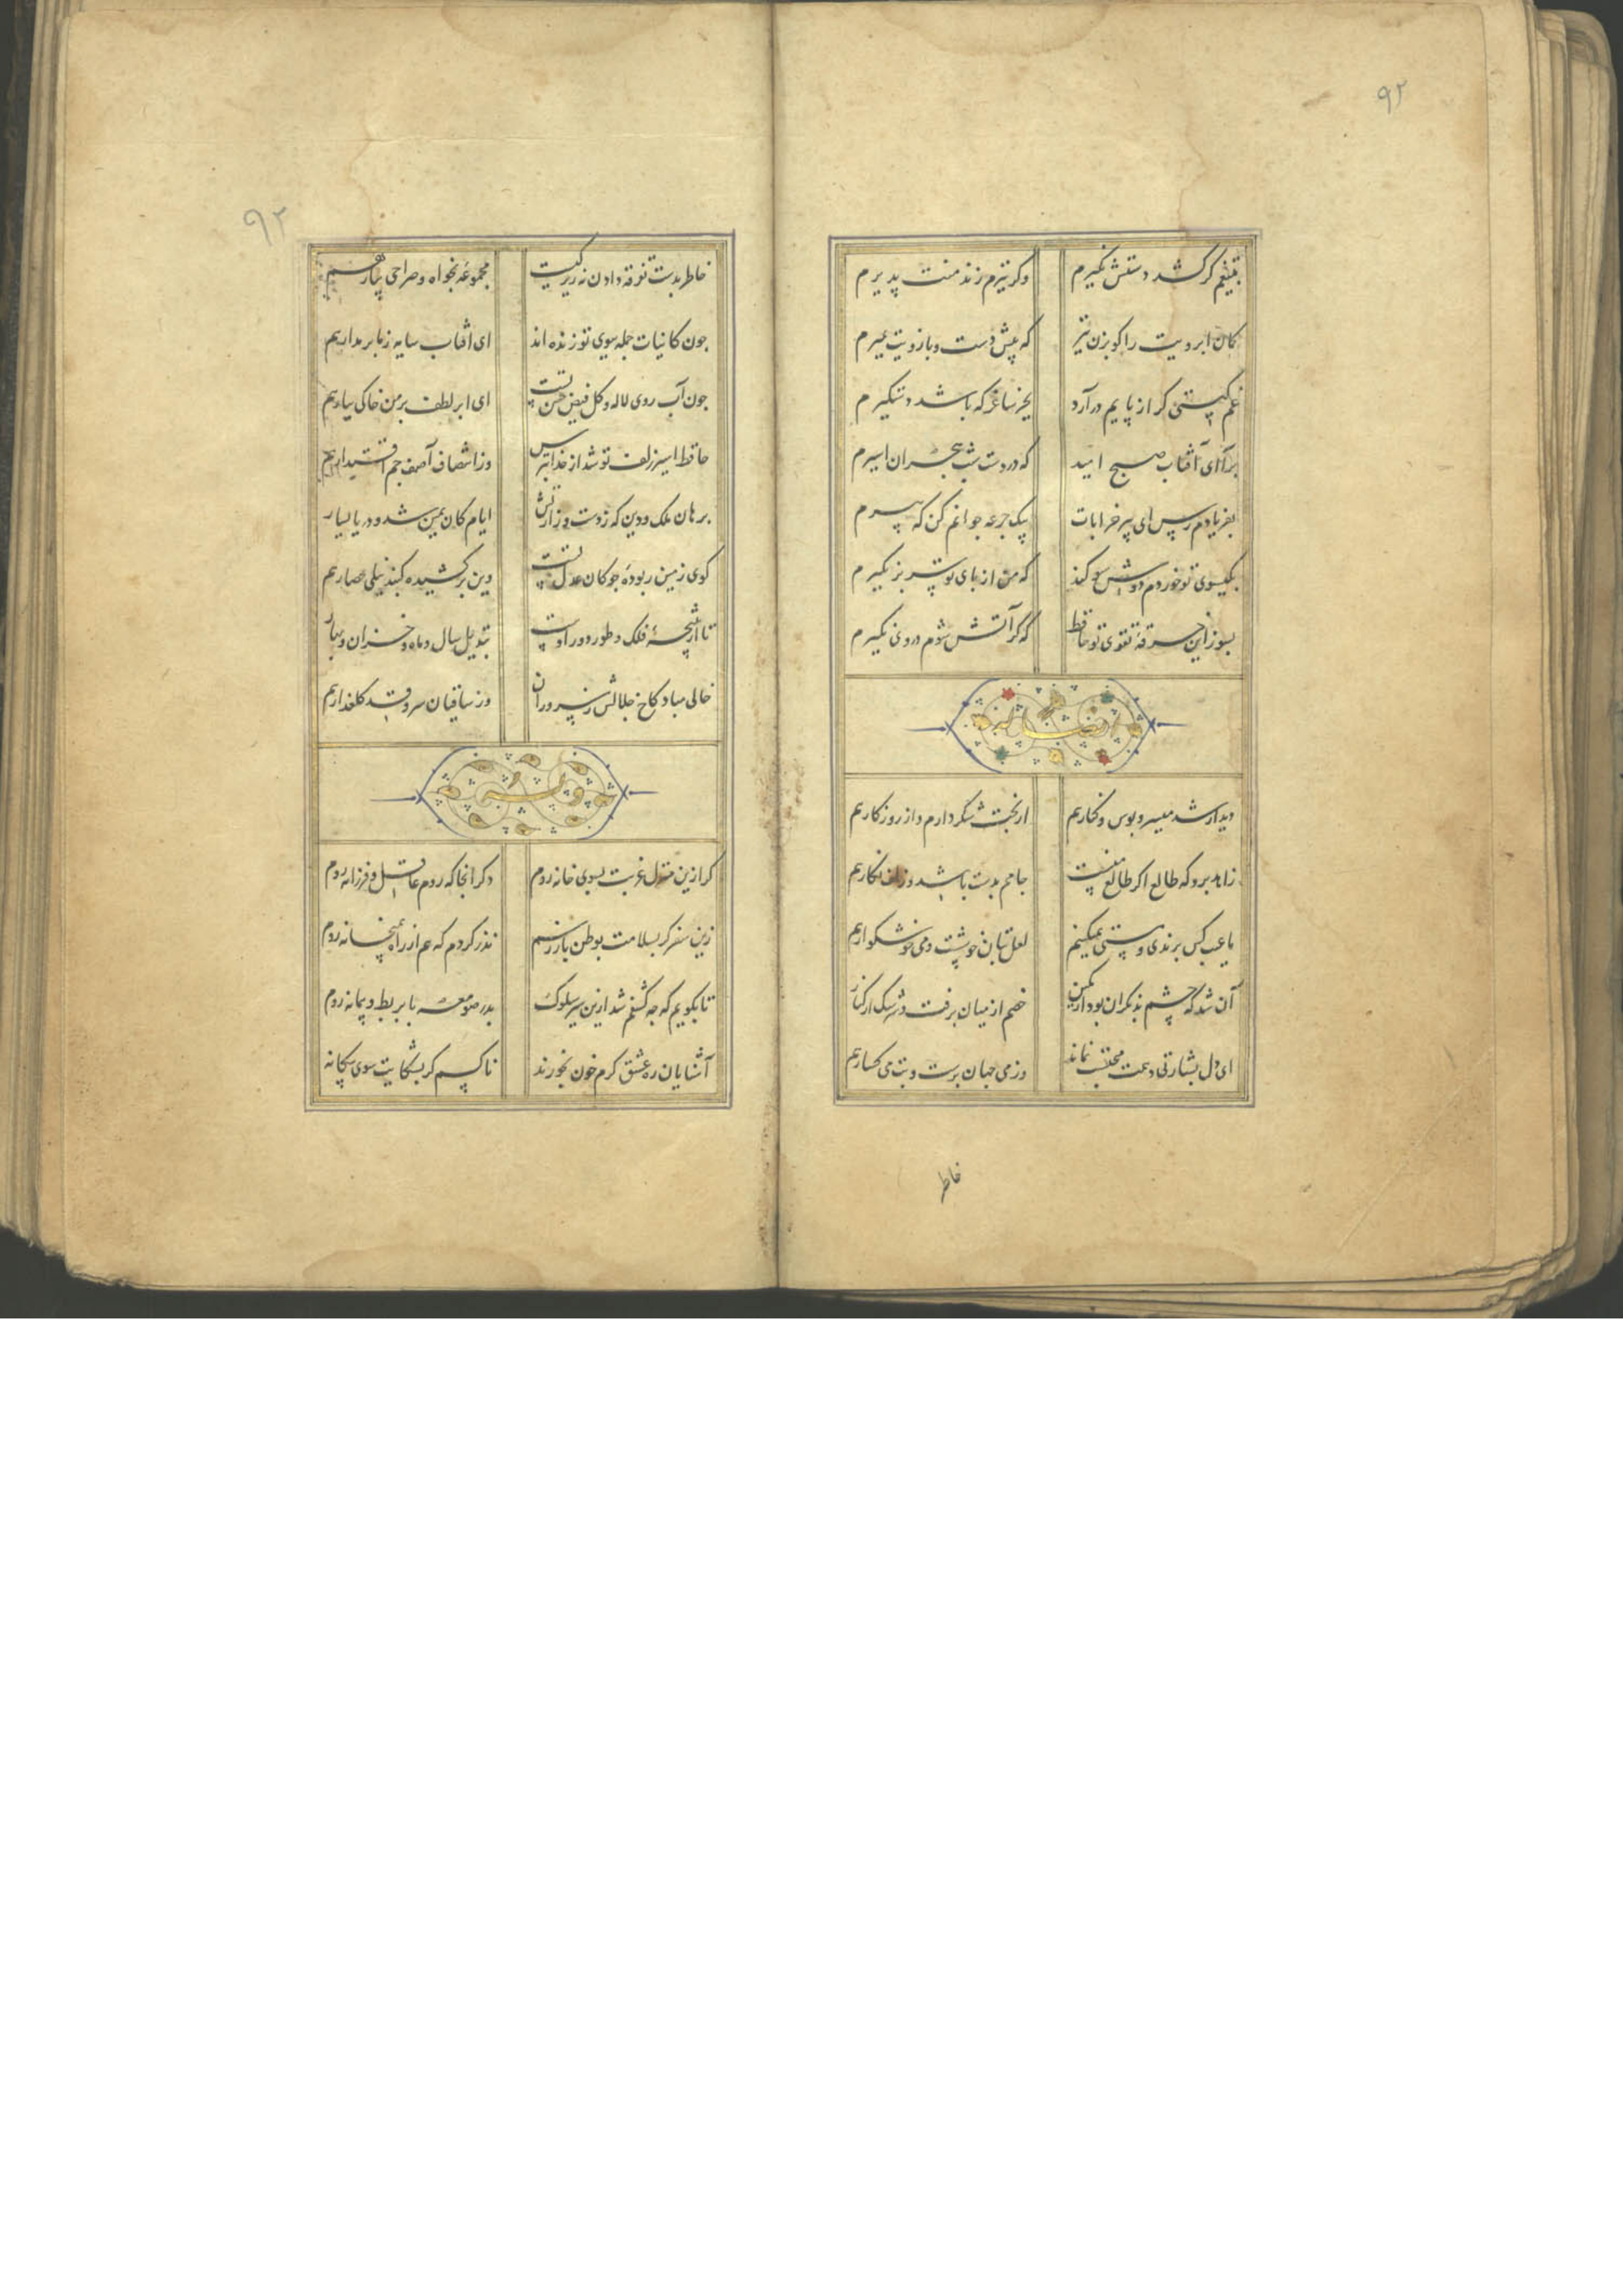 ۹۲
بتیغم کر کشد دستش نکیرم وکر تیرم زند منت پذیرم
کمان ابرویت را کو بزن تیر که پیش دست و بازویت بمیرم
غم کیتی کر از پایم درآرد بجز ساغر که باشد دستکیرم
برآ ای آفتاب صبح امید که در دست شب هجران اسیرم
بفریادم رس ای پیر خرابات بیک جرعه جوانم کن که پیرم
بکیسوی تو خوردم دوش سوکند که من از پای تو سر بر نکیرم
بسوز این خرقه تقوی تو حافظ که کر آتش شوم در وی نکیرم
ایضا له
دیدار شد میسر و بوس و کنار هم از بخت شکر دارم و از روزکار هم
زاهد برو که طالع اکر طالع منست جامم بدست باشد و زلف نکار هم
ما عیب کس برندی و مستی نمیکنیم لعل بتان خوشست و می خوشکوار هم
آن شد که چشم بد نکران بود از کمین خصم از میان برفت و سرشک از کنار
ای دل بشارتی دهمت محتسب نماند وز می جهان پرست و بت می کسار هم
خاطر
۹۲
خاطر بدست تفرقه دادن نه زیرکیست مجموعه بخواه و صراحی بیار هم
جون کاینات جمله ببوی تو زنده اند ای آفتاب سایه ز ما بر مدار هم
جون آب روی لاله و کل فیض حسن تست ای ابر لطف بر من خاکی ببار هم
حافظ اسیر زلف تو شد از خدا بترس وز انتصاف آصف جم اقتدار هم
برهان ملک و دین که ز دست وزارتش ایام کان یمین شد و دریا یسار
کوی زمین ربوده جوکان عدل تست وین برکشیده کنبد نیلی حصار هم
تا از نتیجهٔ فلک و طور دور اوست تبدیل سال و ماه و خزان و بهار
خالی مباد کاخ جلالش ز سروران وز ساقیان سرو قد کلعذار هم
وله
کر ازین منزل غربت بسوی خانه روم دکر آنجا که روم عاقل و فرزانه روم
زین سفر کر بسلامت بوطن باز رسم نذر کردم که هم از راه بمیخانه روم
تا بکویم که جه کشفم شد ازین سیر سلوک بدر صومعه با بربط و پیمانه روم
آشنایان ره عشق کرم خون بخورند ناکسم کر بشکایت سوی بیکانه